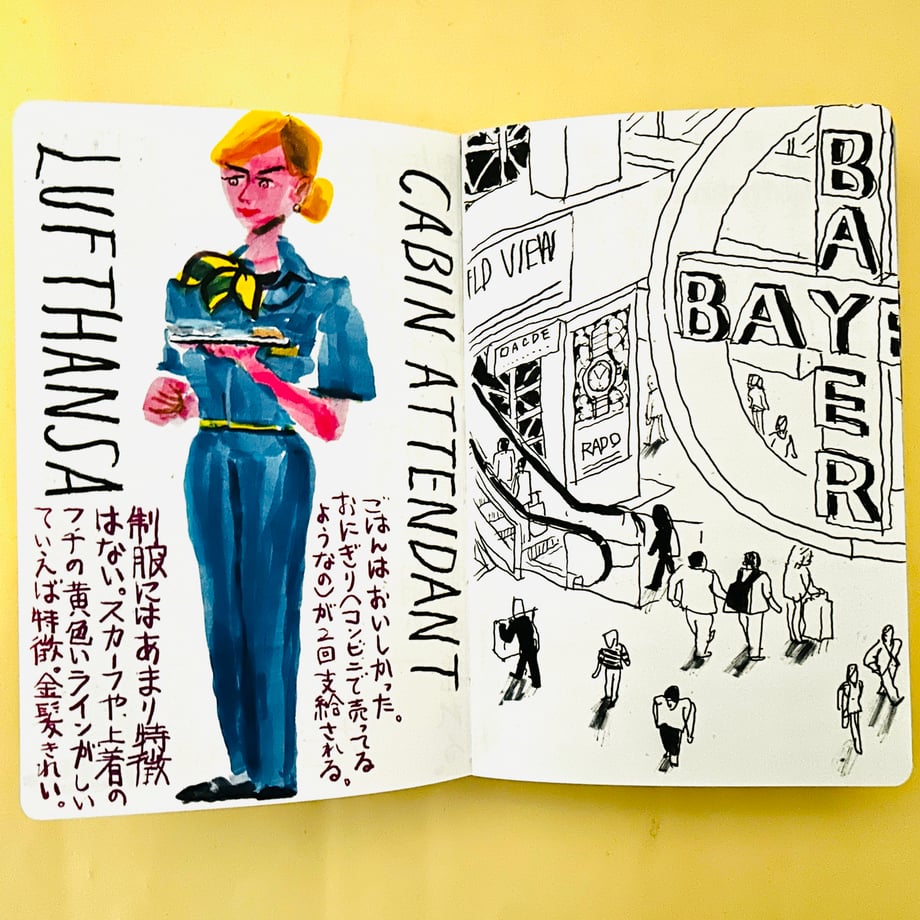 LUFTHANSA
CABIN ATTENDANT
ごはんはおいしかった。
おにぎり(コンビニで売ってる
ようなの)が2回支給される。
制服にはあまり特徴
はない。スカーフや、上着の
フチの黄色いラインがしい
ていえば特徴。金髪きれい。
FLD VIEW
DACDE
RADO
BAYER
BAYE